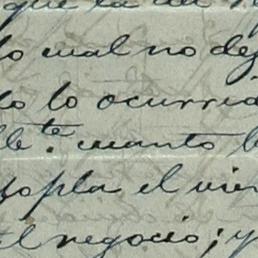 que la
lo cual no dej
lo lo ocurrid
lle.te cuanto
sopla el vien
el negocio; y